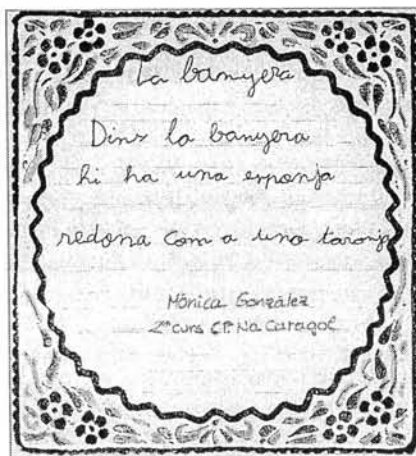 La banyera
Dins la banyera
hi ha una esponja
redona com a una taronja
Mònica González
2on curs CP. Na Caragol